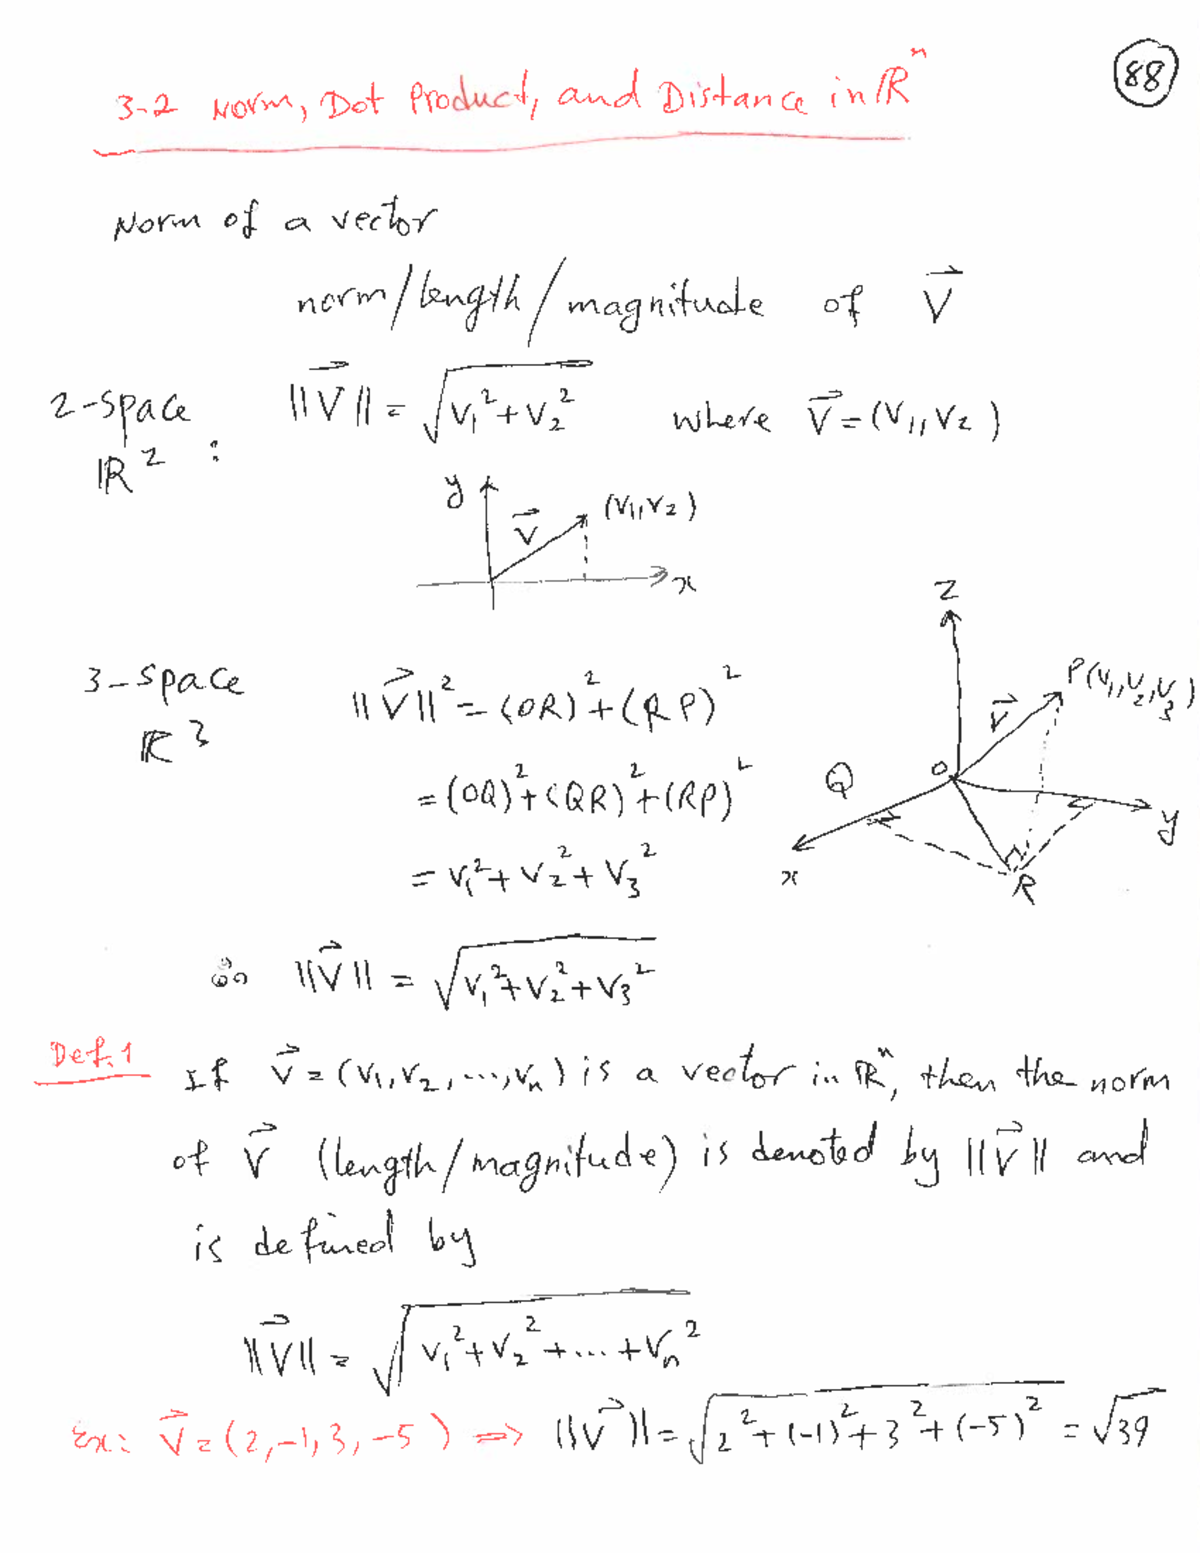 88
3-2 Norm, Dot Product, and Distance in ℝⁿ
Norm of a vector
norm/length/magnitude of V⃗
2-space ‖V⃗‖ = √(v₁² + v₂²) where V⃗ = (v₁, v₂)
ℝ² :
y
V⃗ (v₁, v₂)
x
z
3-space ‖V⃗‖² = (OR)² + (RP)²
ℝ³
P(v₁, v₂, v₃)
V⃗
= (OQ)² + (QR)² + (RP)²
Q O
y
= v₁² + v₂² + v₃²
x R
∴ ‖V⃗‖ = √(v₁² + v₂² + v₃²)
Def. 1 If V⃗ = (v₁, v₂, ..., vₙ) is a vector in ℝⁿ, then the norm
of V⃗ (length/magnitude) is denoted by ‖V⃗‖ and
is defined by
‖V⃗‖ = √(v₁² + v₂² + ... + vₙ²)
Ex: V⃗ = (2, -1, 3, -5) ⇒ ‖V⃗‖ = √(2² + (-1)² + 3² + (-5)²) = √39